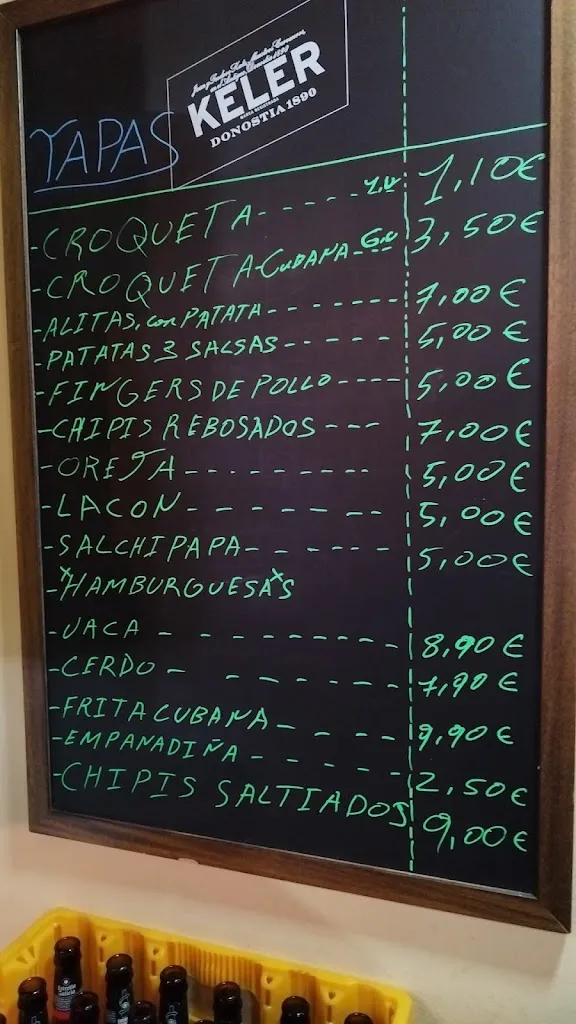 KELER
DONOSTIA 1890
TAPAS
-CROQUETA----- 1.U 1,10€
-CROQUETA-CUBANA-6.U 3,50€
-ALITAS, con PATATA------ 7,00€
-PATATAS 3 SALSAS----- 5,00€
-FINGERS DE POLLO---- 5,00€
-CHIPIS REBOSADOS--- 7,00€
-OREJA--------- 5,00€
-LACON------ 5,00€
-SALCHIPAPA------- 5,00€
-HAMBURGUESAS
-VACA --------- 8,90€
-CERDO ------- 7,90€
-FRITA CUBANA---- 9,90€
-EMPANADIÑA----- 2,50€
-CHIPIS SALTIADOS 9,00€